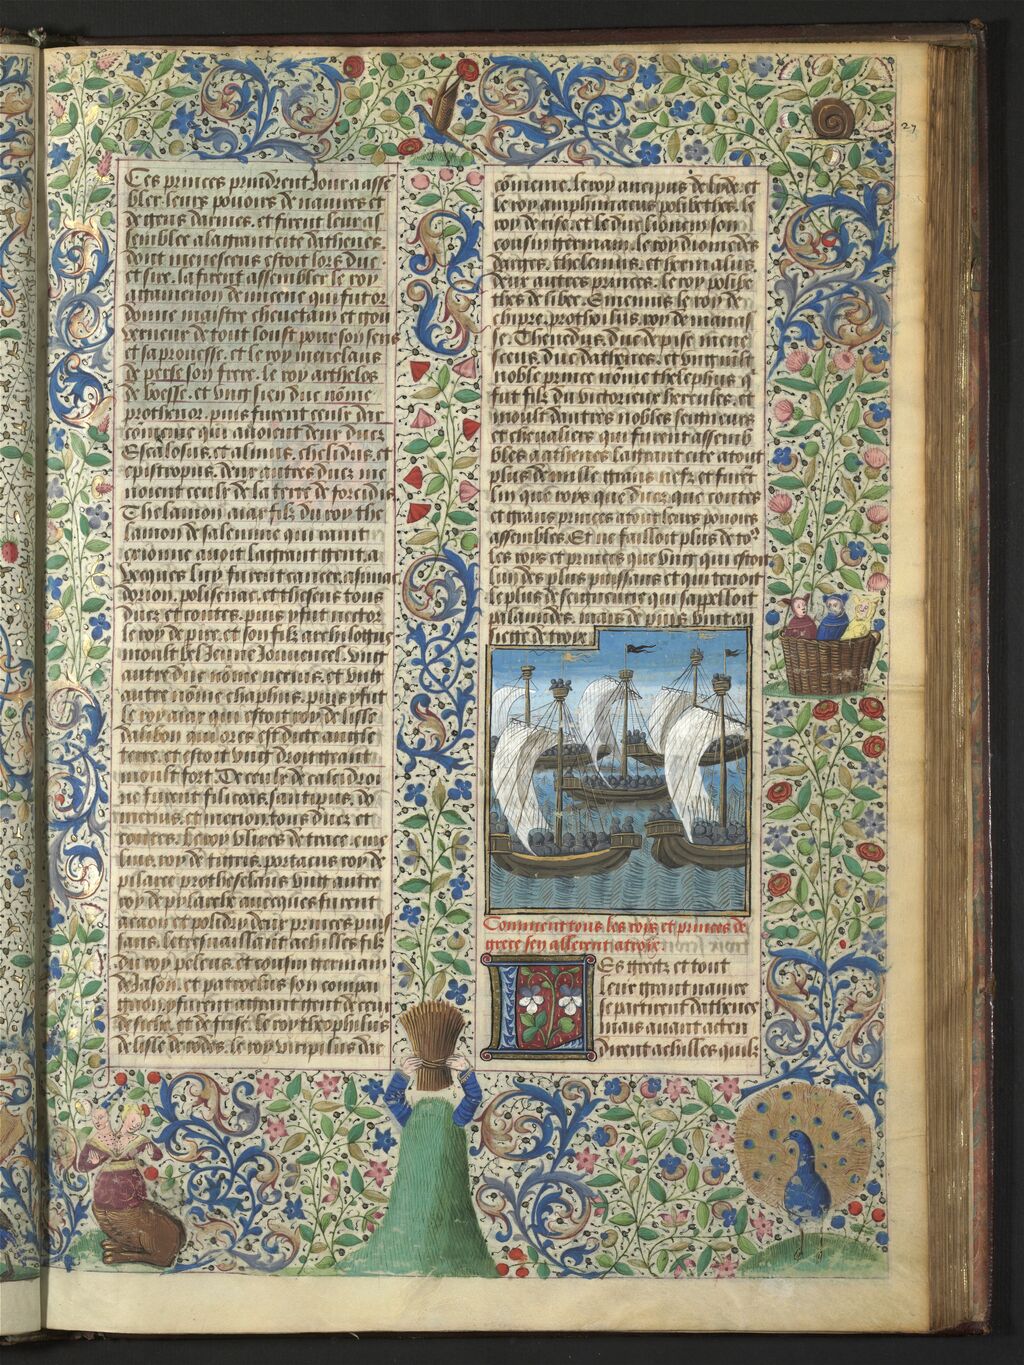 27
Ces princes prindrent Jour a asse
bler leurs pouoirs de nauires et
de gens darmes. et firent leur as
semblee a la grant cite dathenes.
dont menesceus estoit lors duc.
et sire. la furent assembler le roy
agamenon de micene qui fut or
donne maistre cheuetain et gou
uerneur de tout soust pour son sens
et sa prouesse. et le roy menelaus
de perse son frere. le roy arthelos
de boesse. et vng sien duc nome
prothenor. puis furent ceulx du
qui auoient deux ducz
Escalosus et alinus. chelidus. et
epistropus. deux autres ducz
noient ceulx de la terre de
Thelamon aiax filz du roy the
lamon de salemine qui tant
auoit la grant gent. a
vecques luy furent
dorion. polisenac. et theseus tous
ducz et contes. puis y fut nector
le roy de pire. et son filz archilogus
moult bel Jeune Jouuencel. vng
autre duc nome nereus. et vng
autre nome chaphus. puis y fut
le roy aiax qui estoit roy de lisse
daubon qui ores est dicte
terre. et estoit vng droit geant
moult fort. De ceulx de calcidoi
ne furent filicais. santipus. do
metius. et merion tous ducz et
contes. le roy vlixes de trace.
lius. roy de tigris. portacus roy de
pilaree protheselaus vng autre
roy de pylarche auecques furent
acaon et polidry deux princes puis
sans. le tresuaillant achilles filz
du roy peleus. et cousin germain
de Jason. et patroclus son compai
gnon. y furent a grant gent de ceux
de et de frise. le roy theophilus
de lisle de rodes. le roy duc
comenie. le roy ancipus de lyde. et
le roy amphimacus polibethes. le
roy de rise. et le duc lionem son
cousin germain. le roy diomedes
darges. thelemus. et hermalus.
deux autres princes. le roy polipe
thes de liber. Emenius le roy de
chipre. prothoilus. roy de manas
se. Thenedus. duc de pise. mene
sceus. duc dathenes. et vng moult
noble prince nome thelephus q
fut filz du victorieux hercules. et
moult dautres nobles seigneurs
et cheualiers qui furent assemb
bles a athenes la grant cite a tout
plus de mille grans nefz et furet
lin que roys que ducz que contes
et grans princes a tout leurs pouoirs
assembles. Et ne failloit plus de to
les rois et princes que vng qui estoit
lun des plus puissans et qui tenoit
le plus de seigneurie qui sappelloit
palamides. mais de puis vint au
siege de troye.
Comment tous les roys et princes de
grece sen allerent a troye.
Les grecz et tout
leur grant nauire
se partirent dathenes
mais auant
dirent achilles quilz